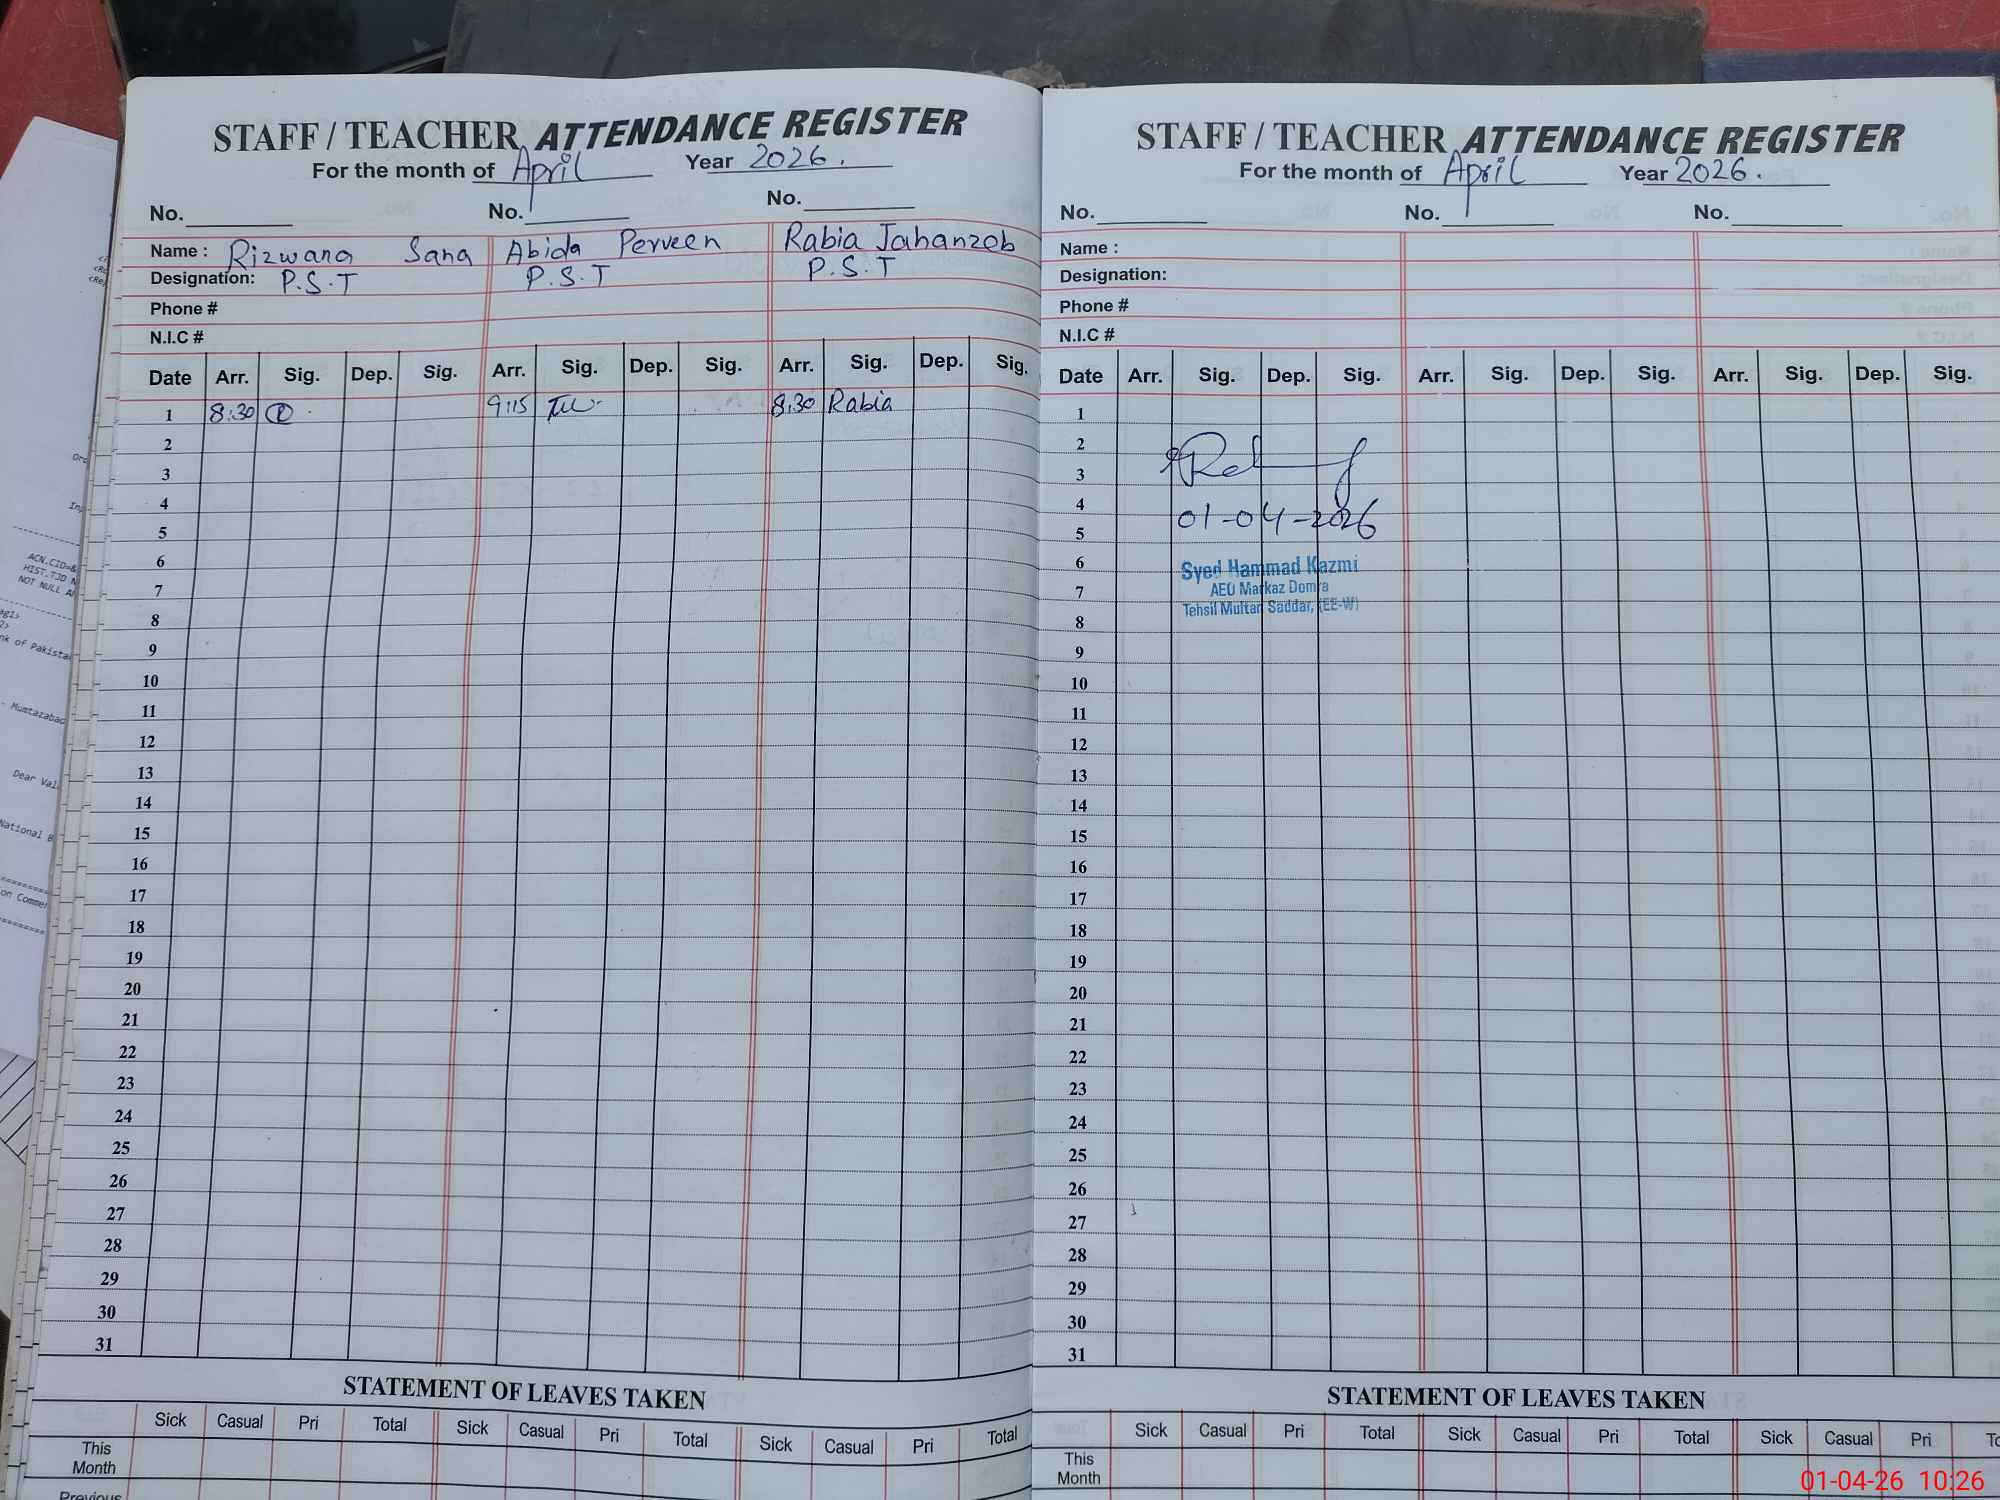 STAFF / TEACHER ATTENDANCE REGISTER
For the month of April Year 2026.
No. No. No.
Name : Rizwana Sana Abida Perveen Rabia Jahanzeb
Designation: P.S.T P.S.T P.S.T
Phone #
N.I.C #
Date Arr. Sig. Dep. Sig. Arr. Sig. Dep. Sig. Arr. Sig. Dep. Sig.
1 8:30 9:15 8:30 Rabia
2
3
4
5
6
7
8
9
10
11
12
13
14
15
16
17
18
19
20
21
22
23
24
25
26
27
28
29
30
31
STATEMENT OF LEAVES TAKEN
Sick Casual Pri Total Sick Casual Pri Total Sick Casual Pri Total
This
Month
Previous
STAFF / TEACHER ATTENDANCE REGISTER
For the month of April Year 2026.
No. No. No.
Name :
Designation:
Phone #
N.I.C #
Date Arr. Sig. Dep. Sig. Arr. Sig. Dep. Sig. Arr. Sig. Dep. Sig.
1
2
3
4
01-04-2026
5
6
Syed Hammad Kazmi
7
AEO Markaz Domra
Tehsil Multan Saddar, (EE-W)
8
9
10
11
12
13
14
15
16
17
18
19
20
21
22
23
24
25
26
27
28
29
30
31
STATEMENT OF LEAVES TAKEN
Sick Casual Pri Total Sick Casual Pri Total Sick Casual Pri
This
Month
01-04-26 10:26
ACN.CID=&
HIST.TJD N
NOT NULL
nk of Pakista
- Mumtazabad
Dear Val
National B
on Comme